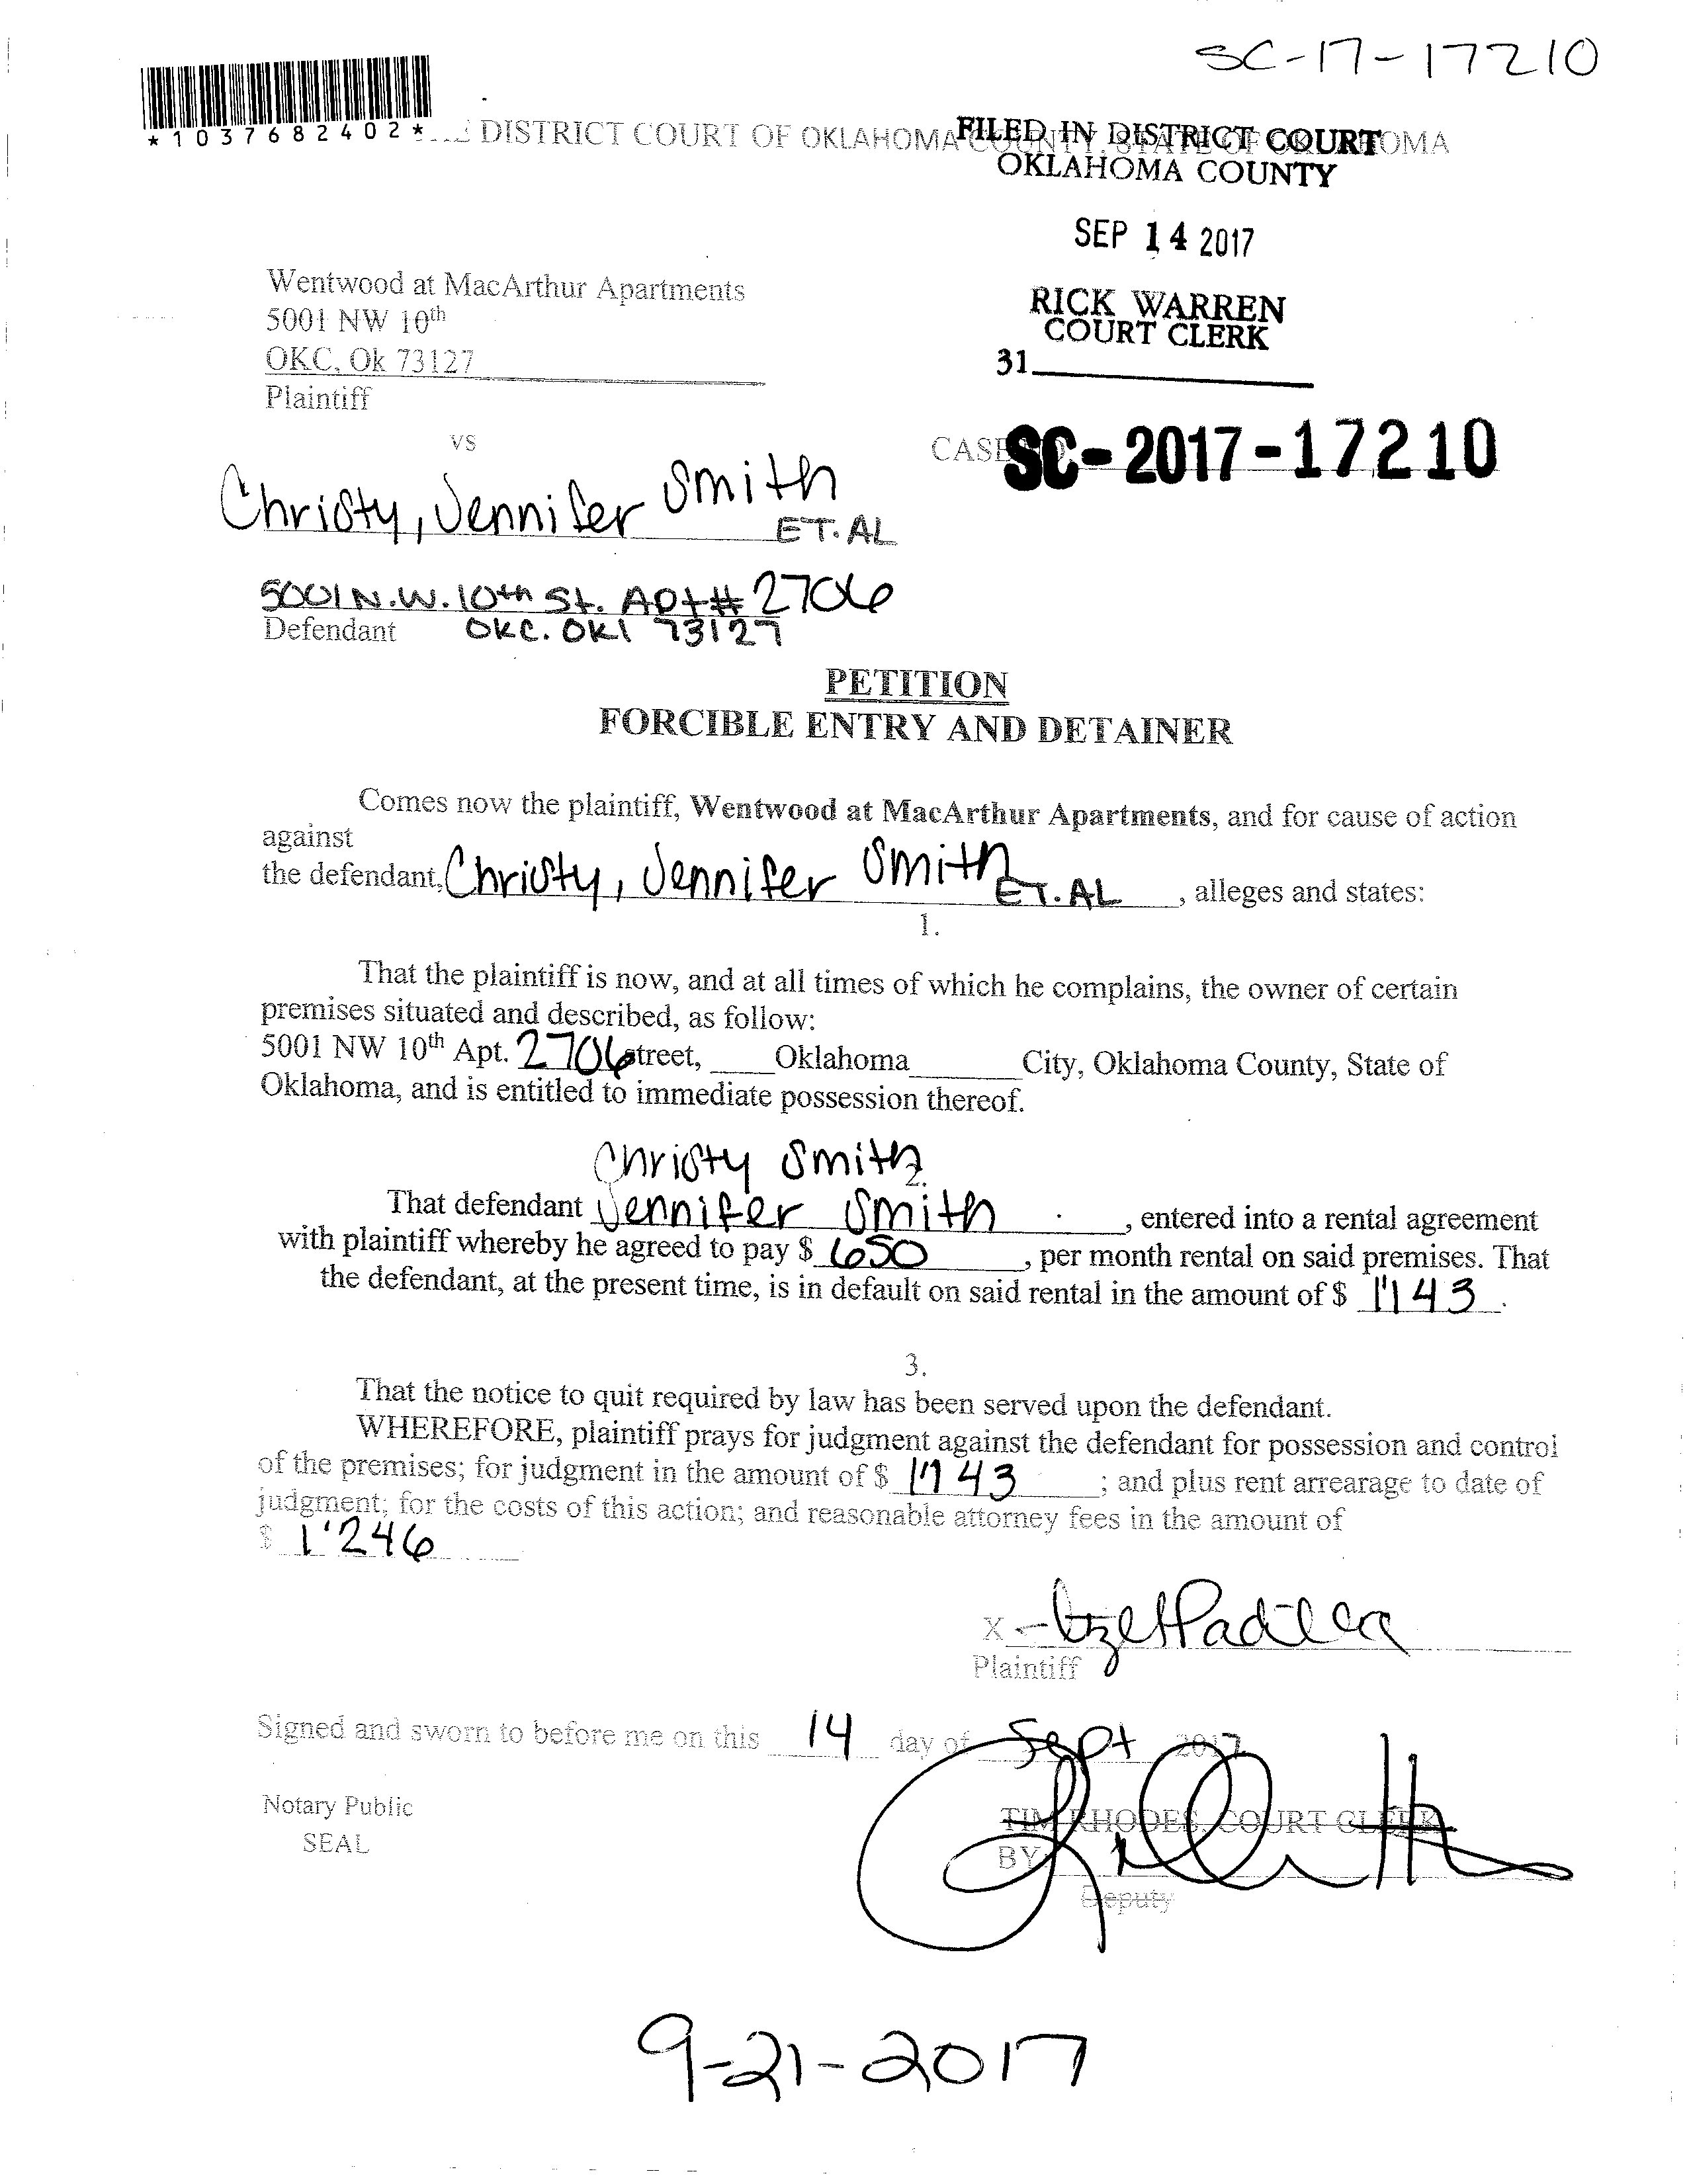 SC-17-17210
*1037682402*
DISTRICT COURT OF OKLAHOMA COUNTY, STATE OF OKLAHOMA
FILED IN DISTRICT COURT
OKLAHOMA COUNTY
SEP 14 2017
Wentwood at MacArthur Apartments
5001 NW 10th
OKC, Ok 73127
Plaintiff
RICK WARREN
COURT CLERK
31
vs
CASE
SC-2017-17210
Christy, Jennifer Smith
ET.AL
5001 N.W. 10th St. Apt# 2706
Defendant OKC. OKl 73127
PETITION
FORCIBLE ENTRY AND DETAINER
Comes now the plaintiff, Wentwood at MacArthur Apartments, and for cause of action
against
the defendant, Christy, Jennifer Smith ET.AL, alleges and states:
1.
That the plaintiff is now, and at all times of which he complains, the owner of certain
premises situated and described, as follow:
5001 NW 10th Apt. 2706 street, Oklahoma City, Oklahoma County, State of
Oklahoma, and is entitled to immediate possession thereof.
Christy Smith
2.
That defendant Jennifer Smith, entered into a rental agreement
with plaintiff whereby he agreed to pay $ 650, per month rental on said premises. That
the defendant, at the present time, is in default on said rental in the amount of $ 1'143.
3.
That the notice to quit required by law has been served upon the defendant.
WHEREFORE, plaintiff prays for judgment against the defendant for possession and control
of the premises; for judgment in the amount of $ 1'143; and plus rent arrearage to date of
judgment; for the costs of this action; and reasonable attorney fees in the amount of
$ 1'246
X
Plaintiff
Signed and sworn to before me on this 14 day of Sept 2017
Notary Public
SEAL
TIM RHODES, COURT CLERK
BY
Deputy
9-21-2017